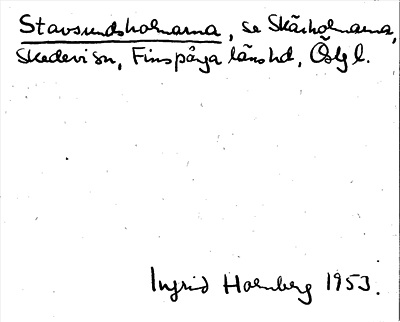 Stavsundsholmarna, se Skärholmarna,
Skedevi sn, Finspånga länshd, Östg l.
Ingrid Holmberg 1953.